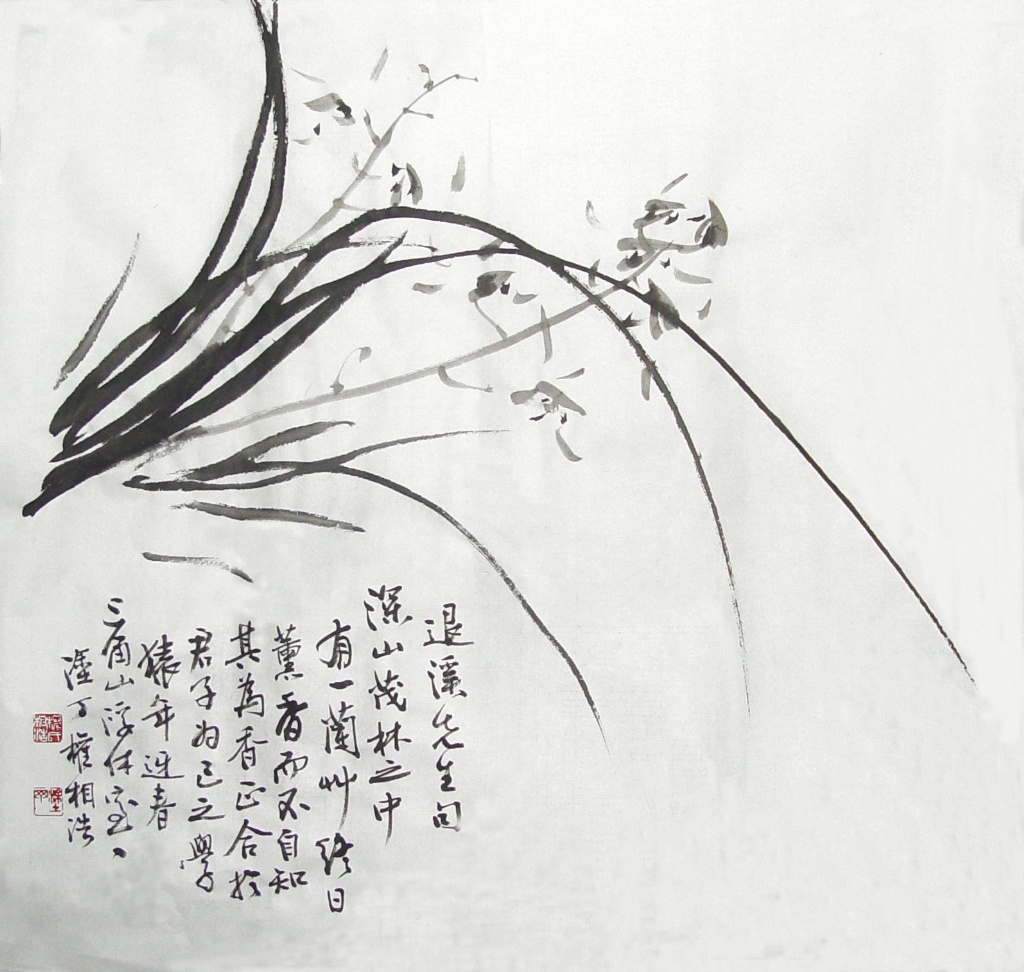 退溪先生句
深山茂林之中
有一蘭艸終日
薰香而不自知
其為香正合於
君子为己之學
猿年迎春
三角山浮休室
塗丁權相浩